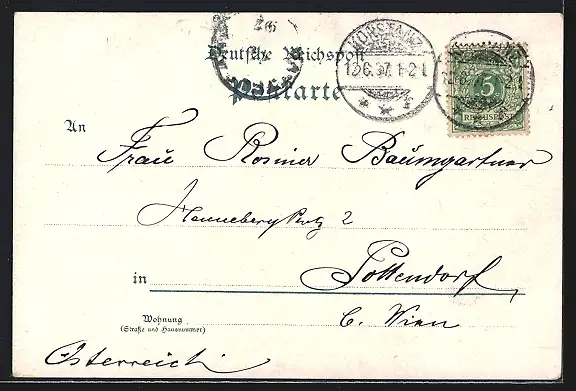 Deutsche Reichspost
Postkarte
KONSTANZ
13.6.97. 1-2 N.
5
REICHSPOST
An
Frau Rosina Baumgartner
2
in Pottendorf,
b. Wien
Wohnung
(Straße und Hausnummer)
Österreich